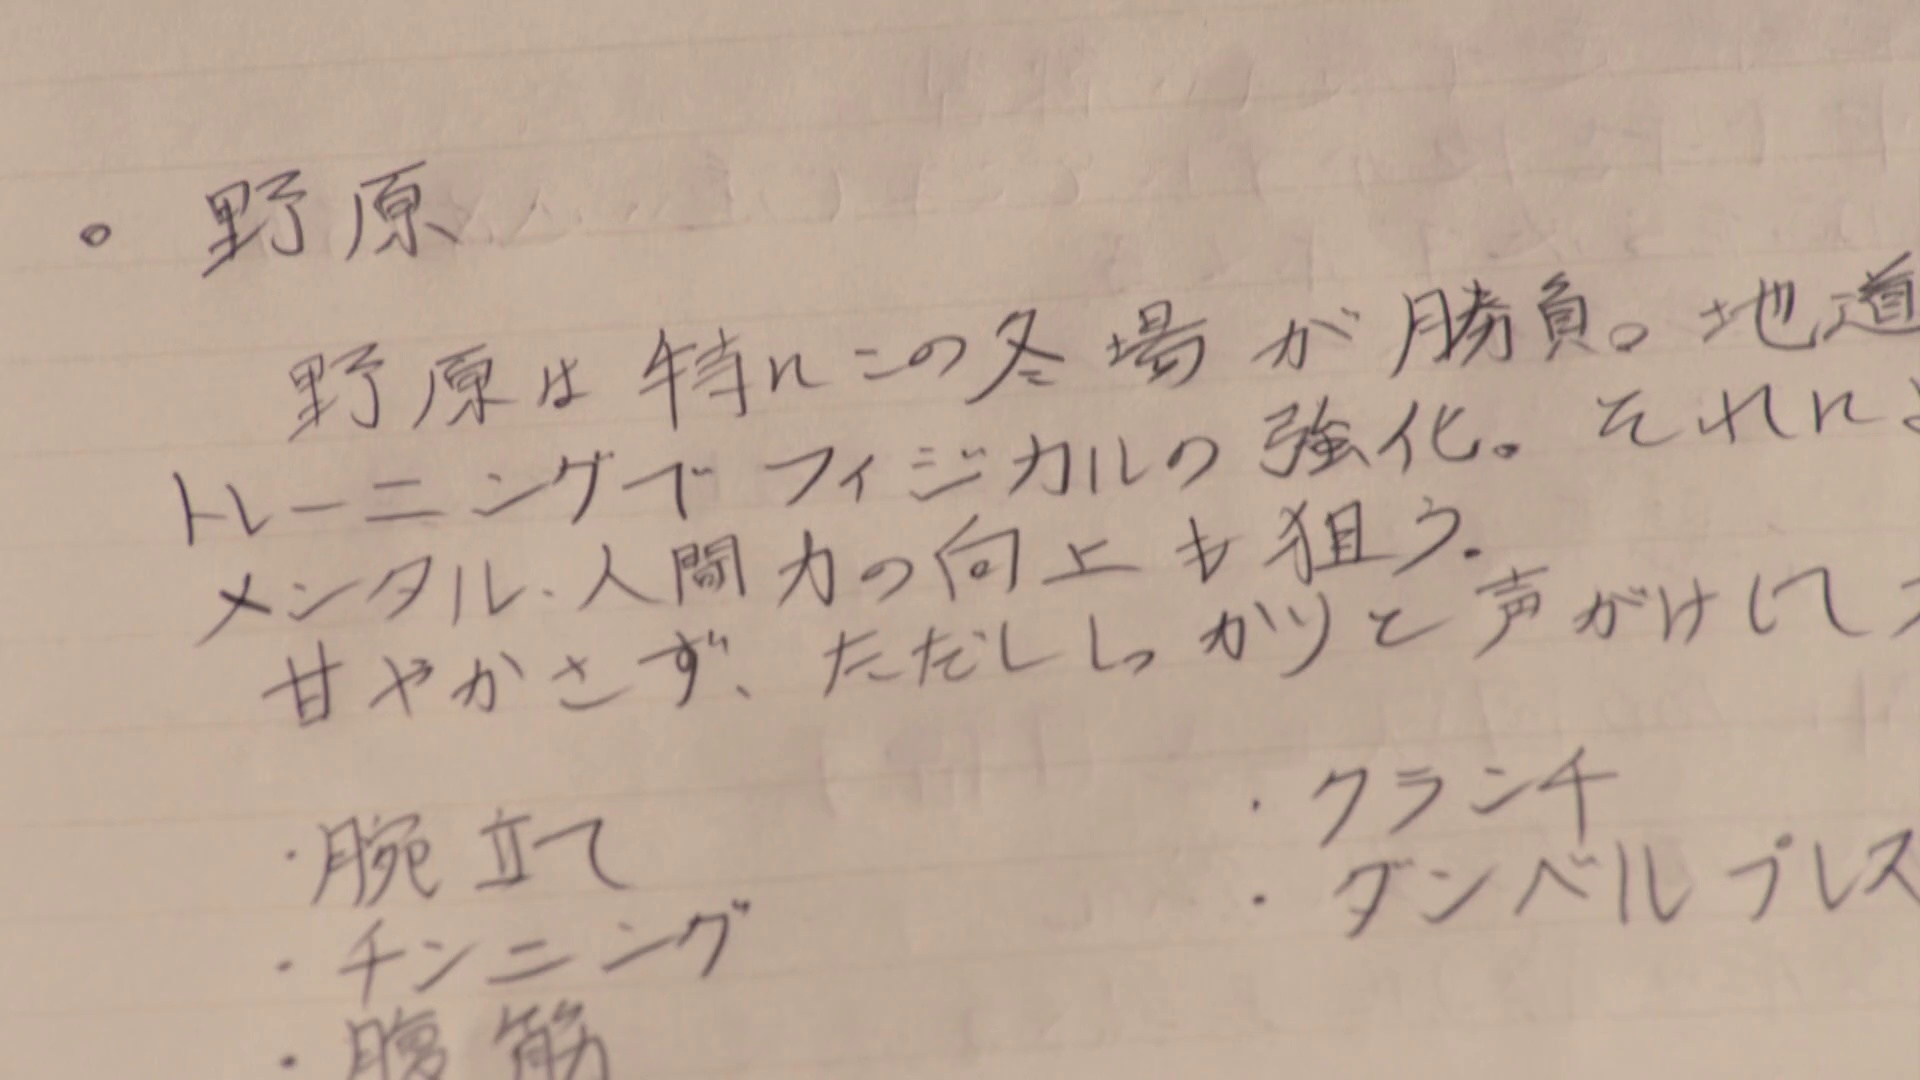 。野原
野原は特にこの冬場が勝負。地道
トレーニングでフィジカルの強化。それによ
メンタル、人間力の向上も狙う。
甘やかさず、ただししっかりと声がけして
・腕立て
・クランチ
・チンニング
・ダンベルプレス
・腹筋